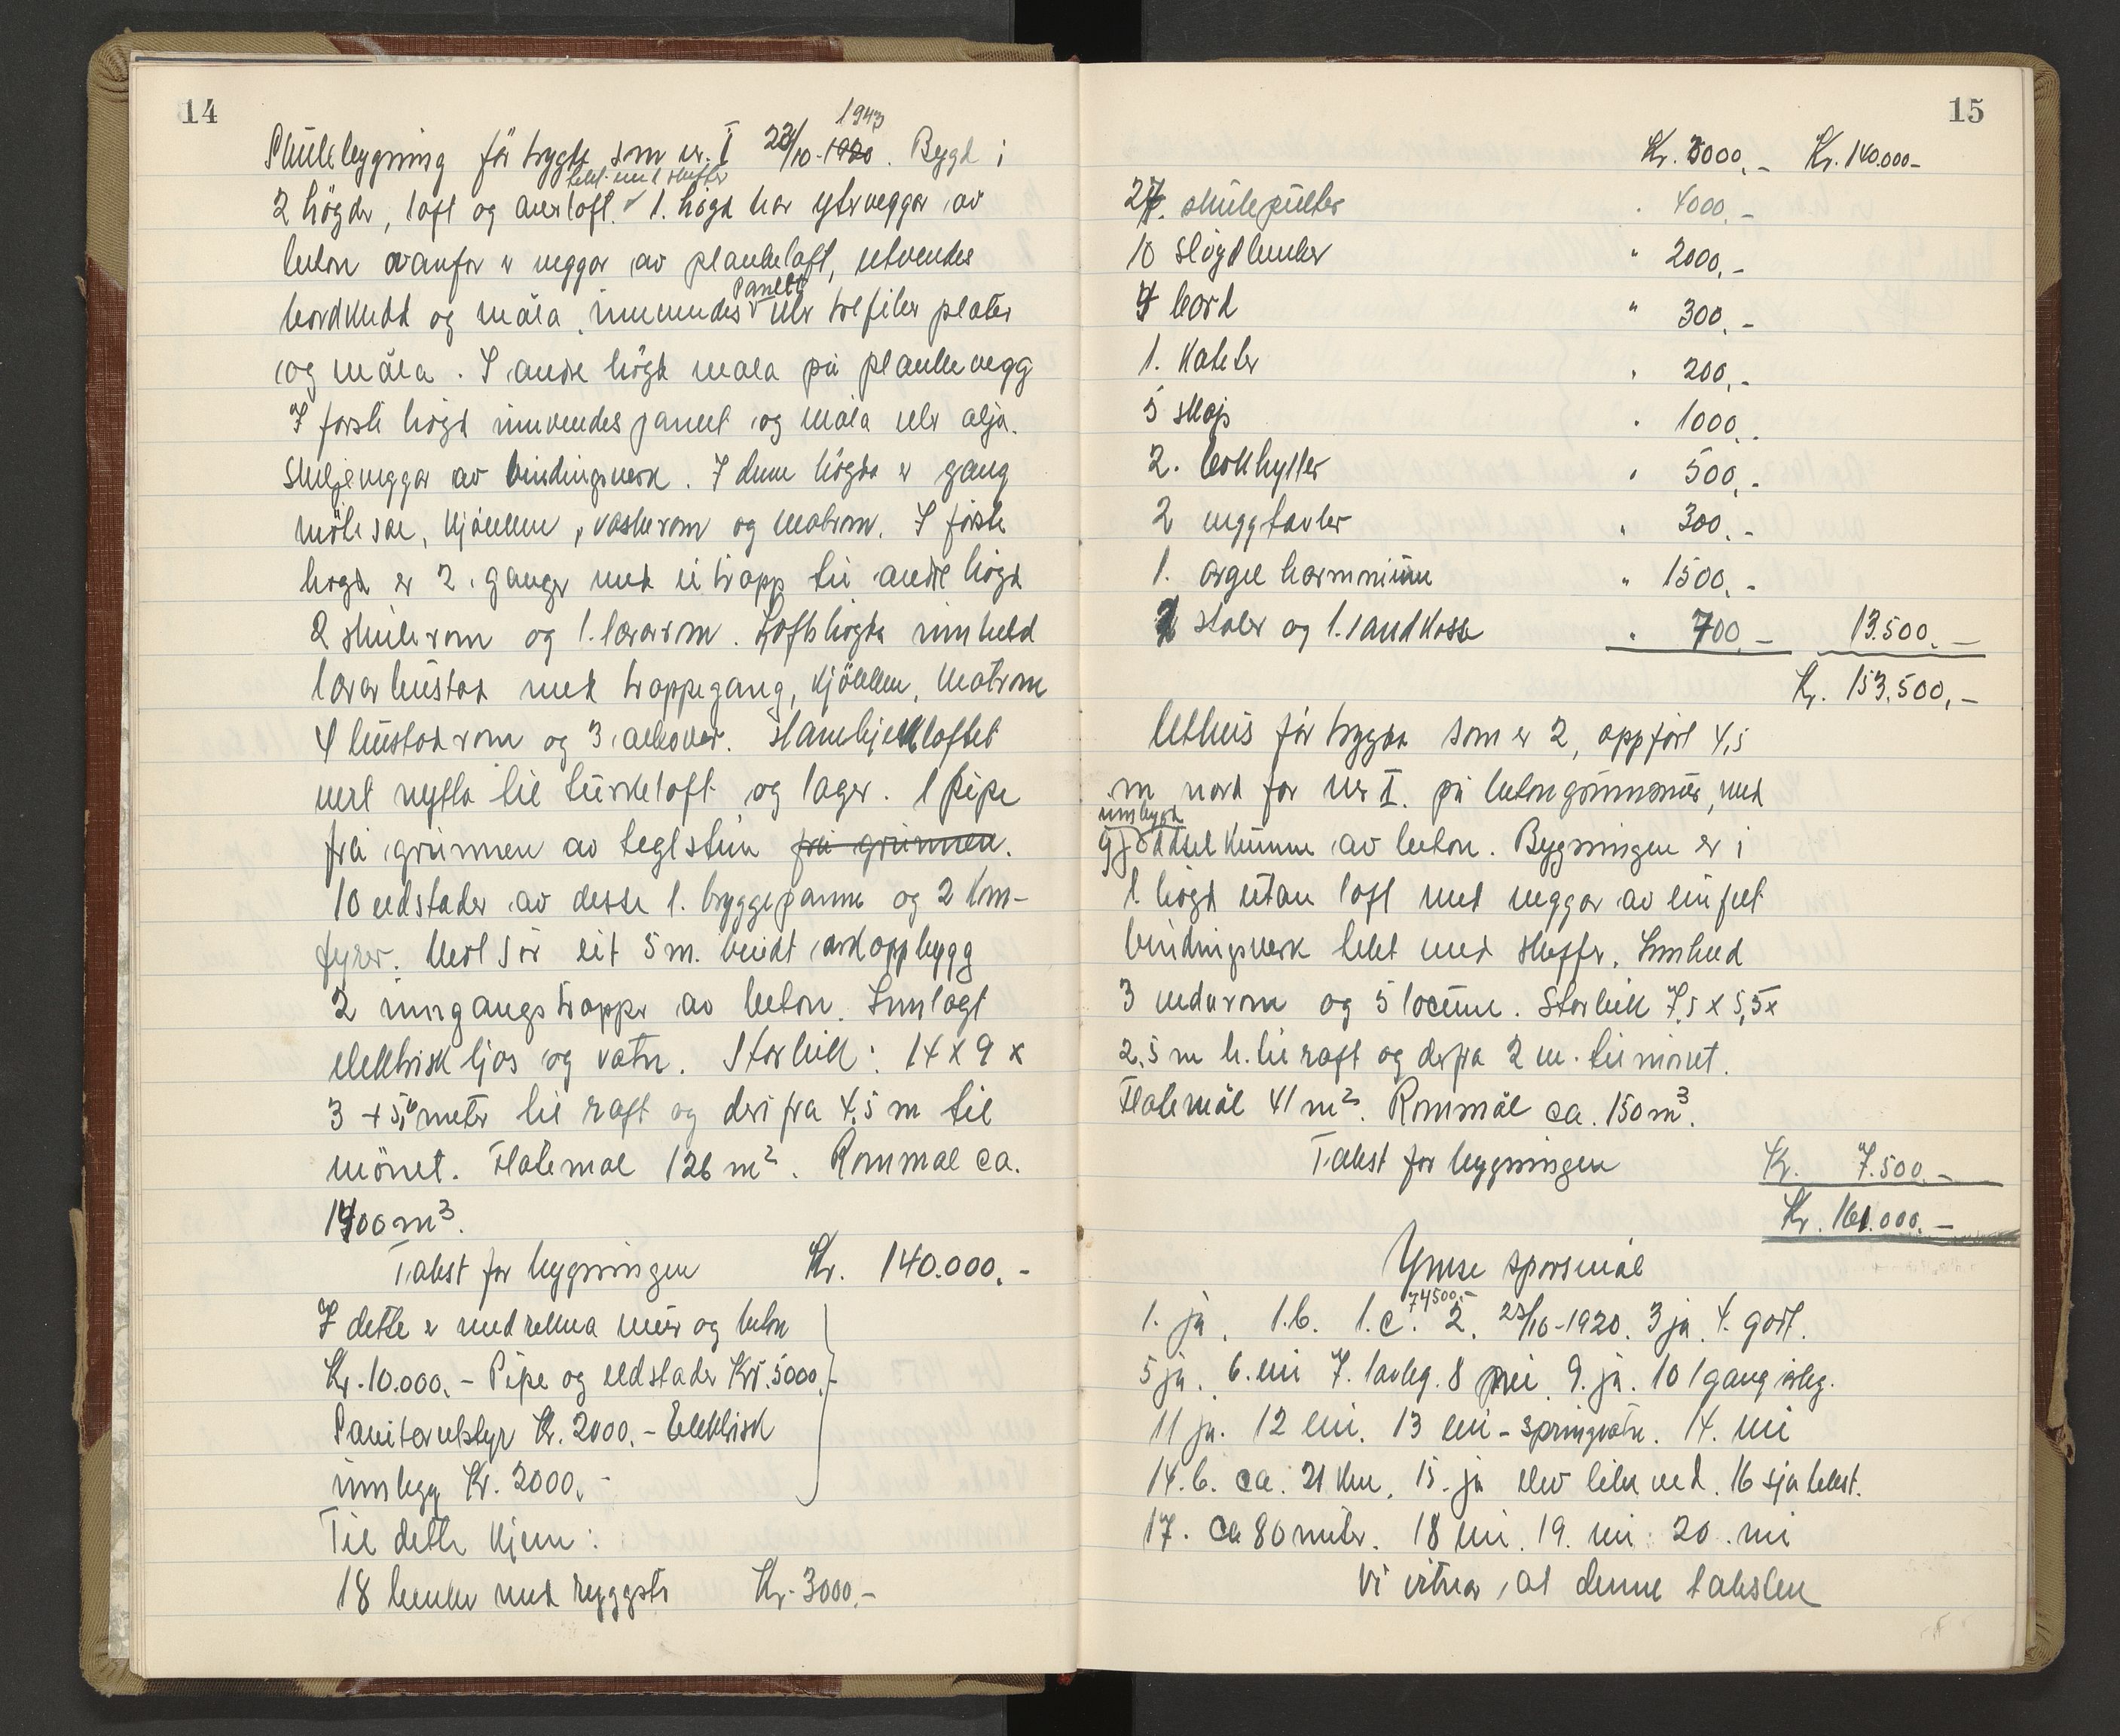 14
1943
Skulebygning før trygda som nr. I 23/10-1920. Bygd i
tekt med skiffer
2 høgder, loft og overloft. 1. høgd har ytterveggar av
beton ovanfor er veggar av plankeloft, utvendes
panelt
bordkledd og måla, innvendes eller trefiber plater
og måla. I andre høgd mala på plankevegg
I første høgd innvendes panelt og måla eller olja.
Skiljeveggar av bindingsverk. I denne høgda er gang
møtesal, kjøkken, vaskerom og matrom. I første
høgd er 2. ganger med ei trapp til andre høgd
2 skulerom og 1. lærarrom. Loftshøgda innheld
lærarbustad med trappegang, kjøkken, matrom
4 bustadrom og 3 alkover. Hanebjelkloftet
vert nytta til turkeloft og lager. 1 Pipe
frå grunnen av teglstein frå grunnen.
10 eldstader av desse 1. bryggepanne og 2 kom-
fyrer. Mot sør eit 5 m. breidt ardoppbygg
2 inngangstrapper av beton. Innlagt
elektrisk ljos og vatn. Storleik: 14 x 9 x
3 + 5,0 meter til raft og derifra 4,5 m til
mønet. Flatemal 126 m². Rommal ca.
1400 m³.
Takst for bygningen Kr. 140.000.-
I dette er medrekna mur og beton
Kr. 10.000.- Pipe og eldstader Kr. 5000.-
Sanitærutstyr Kr. 2000.- Elektrisk
innlegg Kr. 2000.-
Til dette kjem:
18 benker med ryggstø Kr. 3000.-
15
Kr. 3000.- Kr. 140.000-
27. skulepulter " 4000.-
10 sløgdbenker " 2000.-
4 bord " 300.-
1. Kateter " 200.-
5 skap " 1000.-
2. bokhyller " 500.-
2 veggtavler " 300.-
1. orgel harmonium " 1500.-
stoler og 1. sandkasse " 700.- 13.500.-
Kr. 153.500,-
Uthus før trygda som nr 2, oppført 4,5
m nord for nr I. på betongrunnmur, med
innbygd
gjøddselkumme av beton. Bygningen er i
1. høgd utan loft med veggar av einfelt
bindingsverk tekt med skiffer. Innheld
3 vedarom og 5 locum. Storleik 7,5 x 5,5 x
2,5 m h. til raft og derfra 2 m. til mønet.
Flatemål 41 m². Rommål ca. 150 m³.
Takst for bygningen Kr. 7.500.-
Kr. 161.000.-
Ymse spørsmål
74500.-
1. ja. 1.b. 1.c. 2. 23/10-1920. 3 ja. 4. godt.
5 ja. 6. nei 7. lovleg. 8 nei. 9. ja. 10 1 gang årleg.
11 ja. 12 nei. 13 nei - springvatn. 14. nei
14.b. ca. 21 km. 15. ja elev like ved. 16 sjå tekst.
17. Ca 80 meter. 18 nei. 19. nei. 20. nei
Vi vitnar, at denne taksten